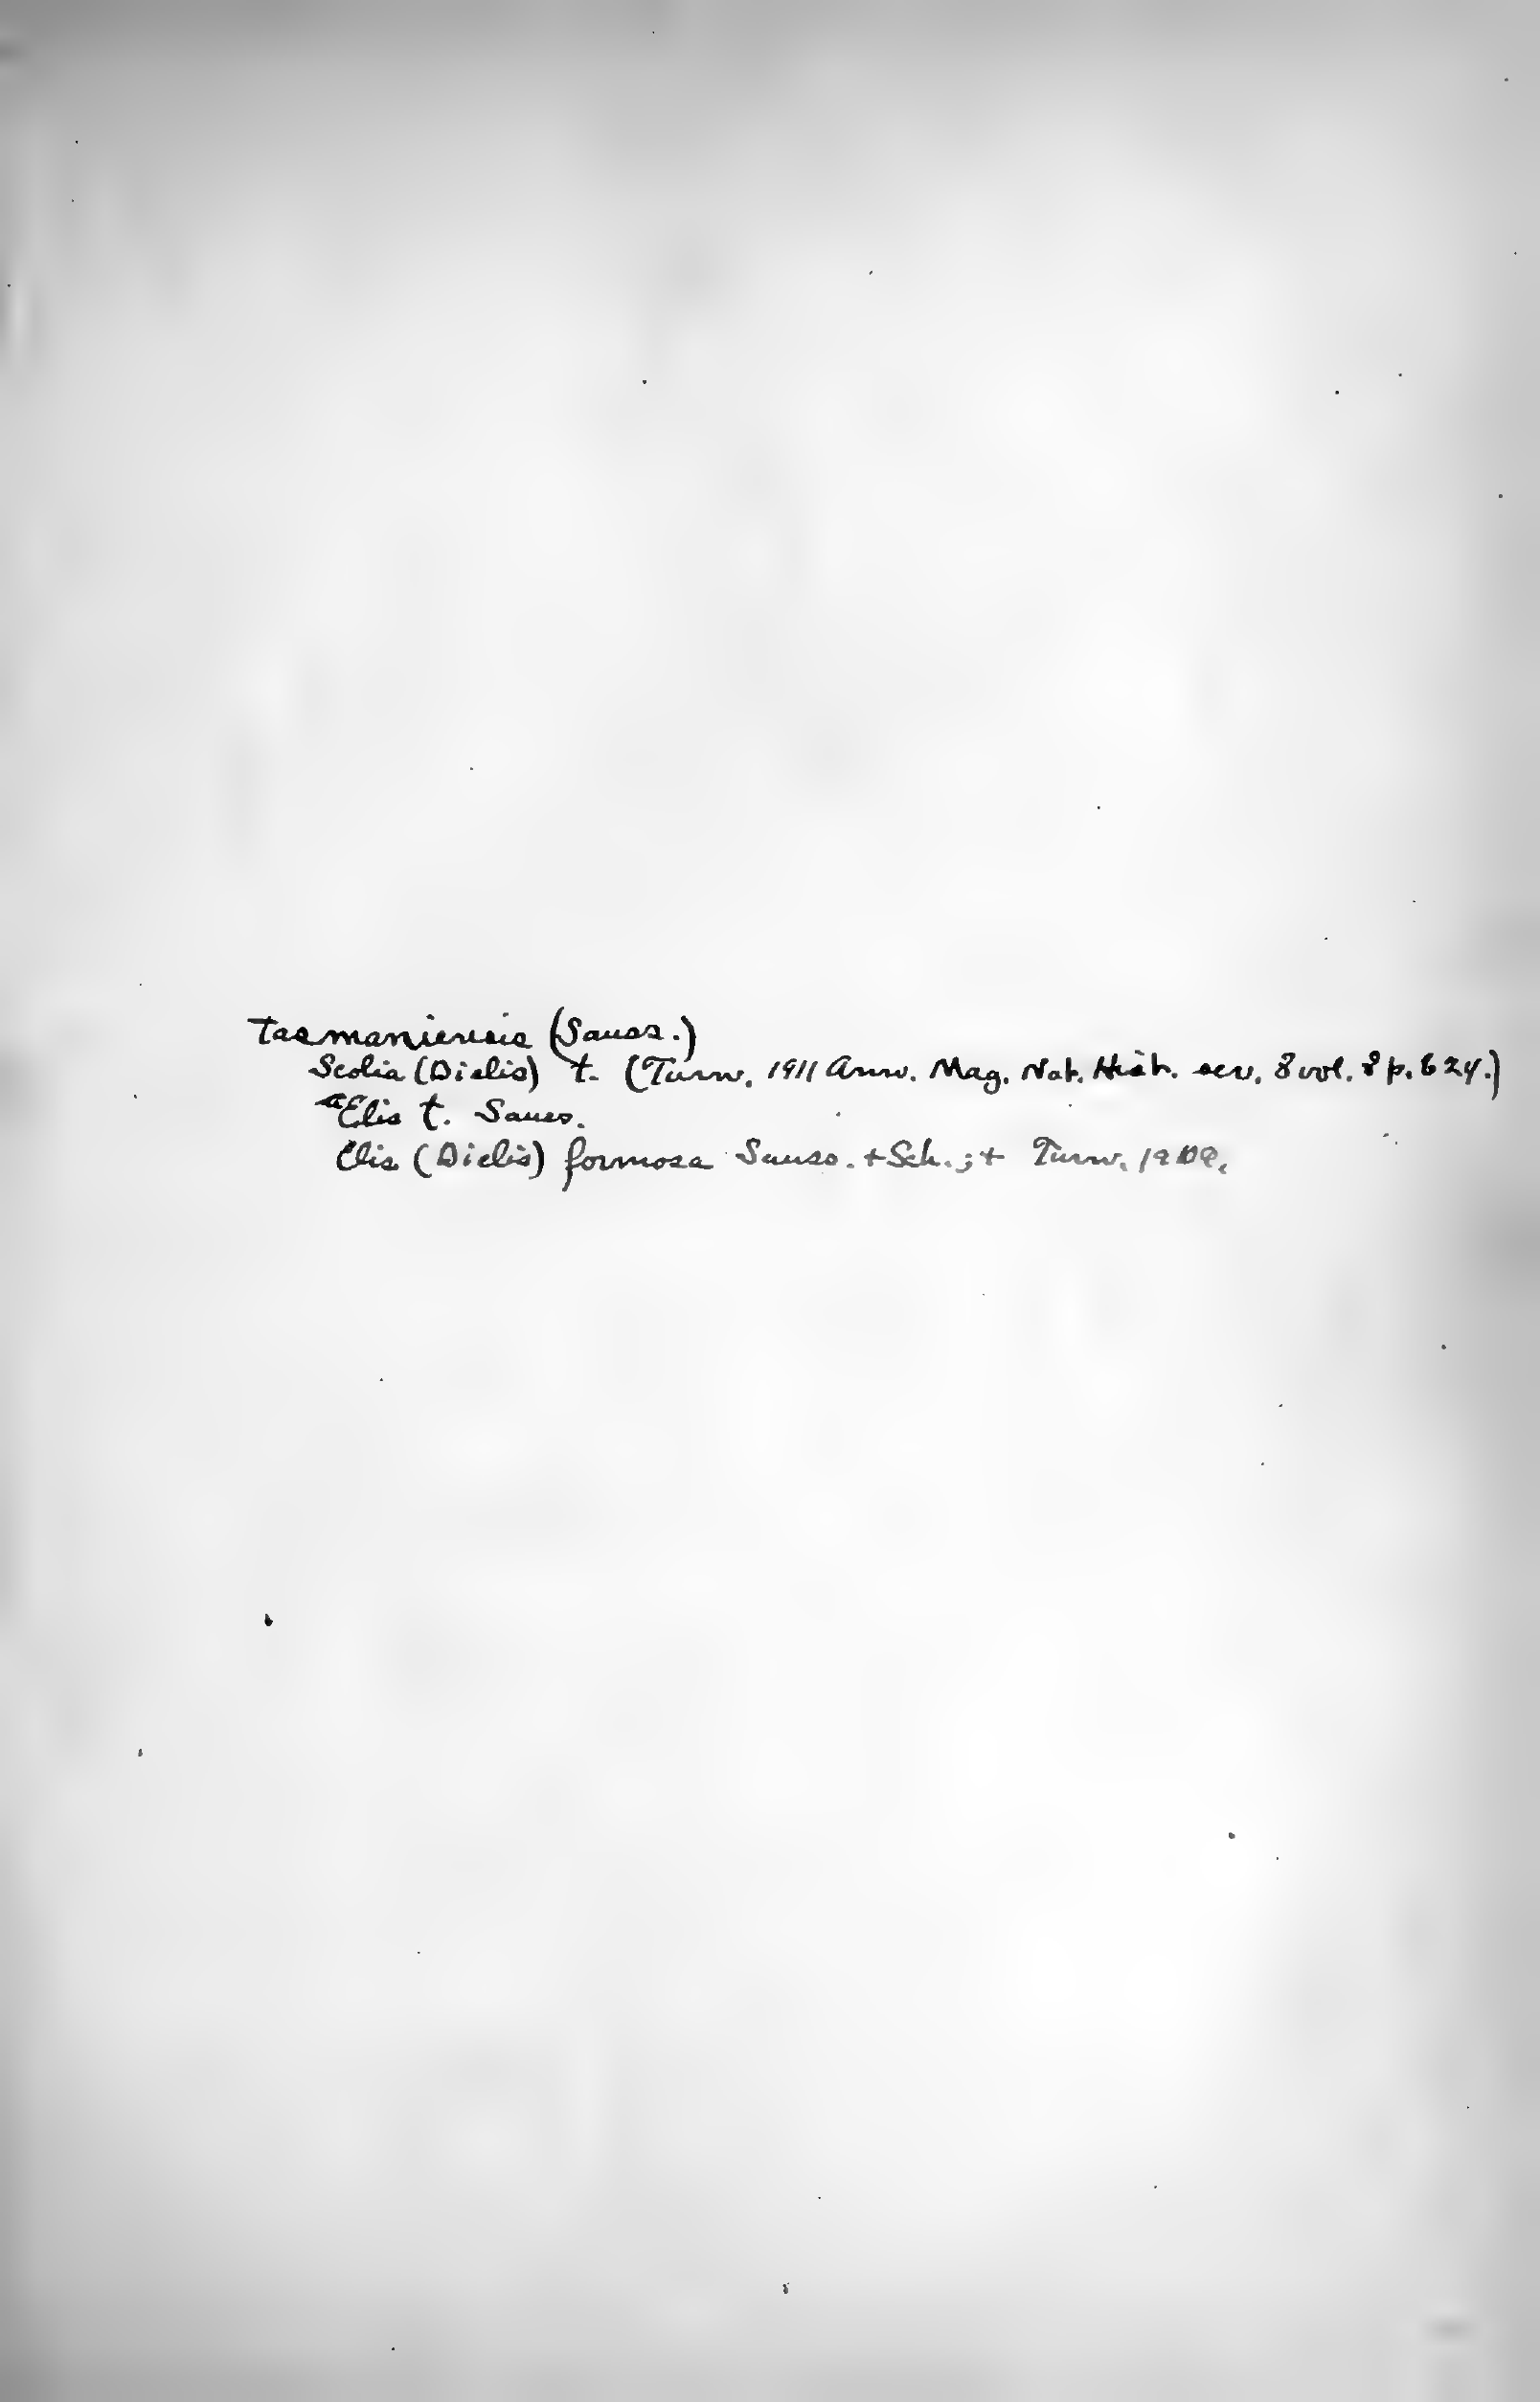 tasmaniensis (Sauss.)
Scolia (Dielis) t. (Turn. 1911 Ann. Mag. Nat. Hist. ser. 8 vol. 8 p. 624.)
Elis t. Sauss.
Elis (Dielis) formosa Sauss. + Sch.; + Turn. 1909.